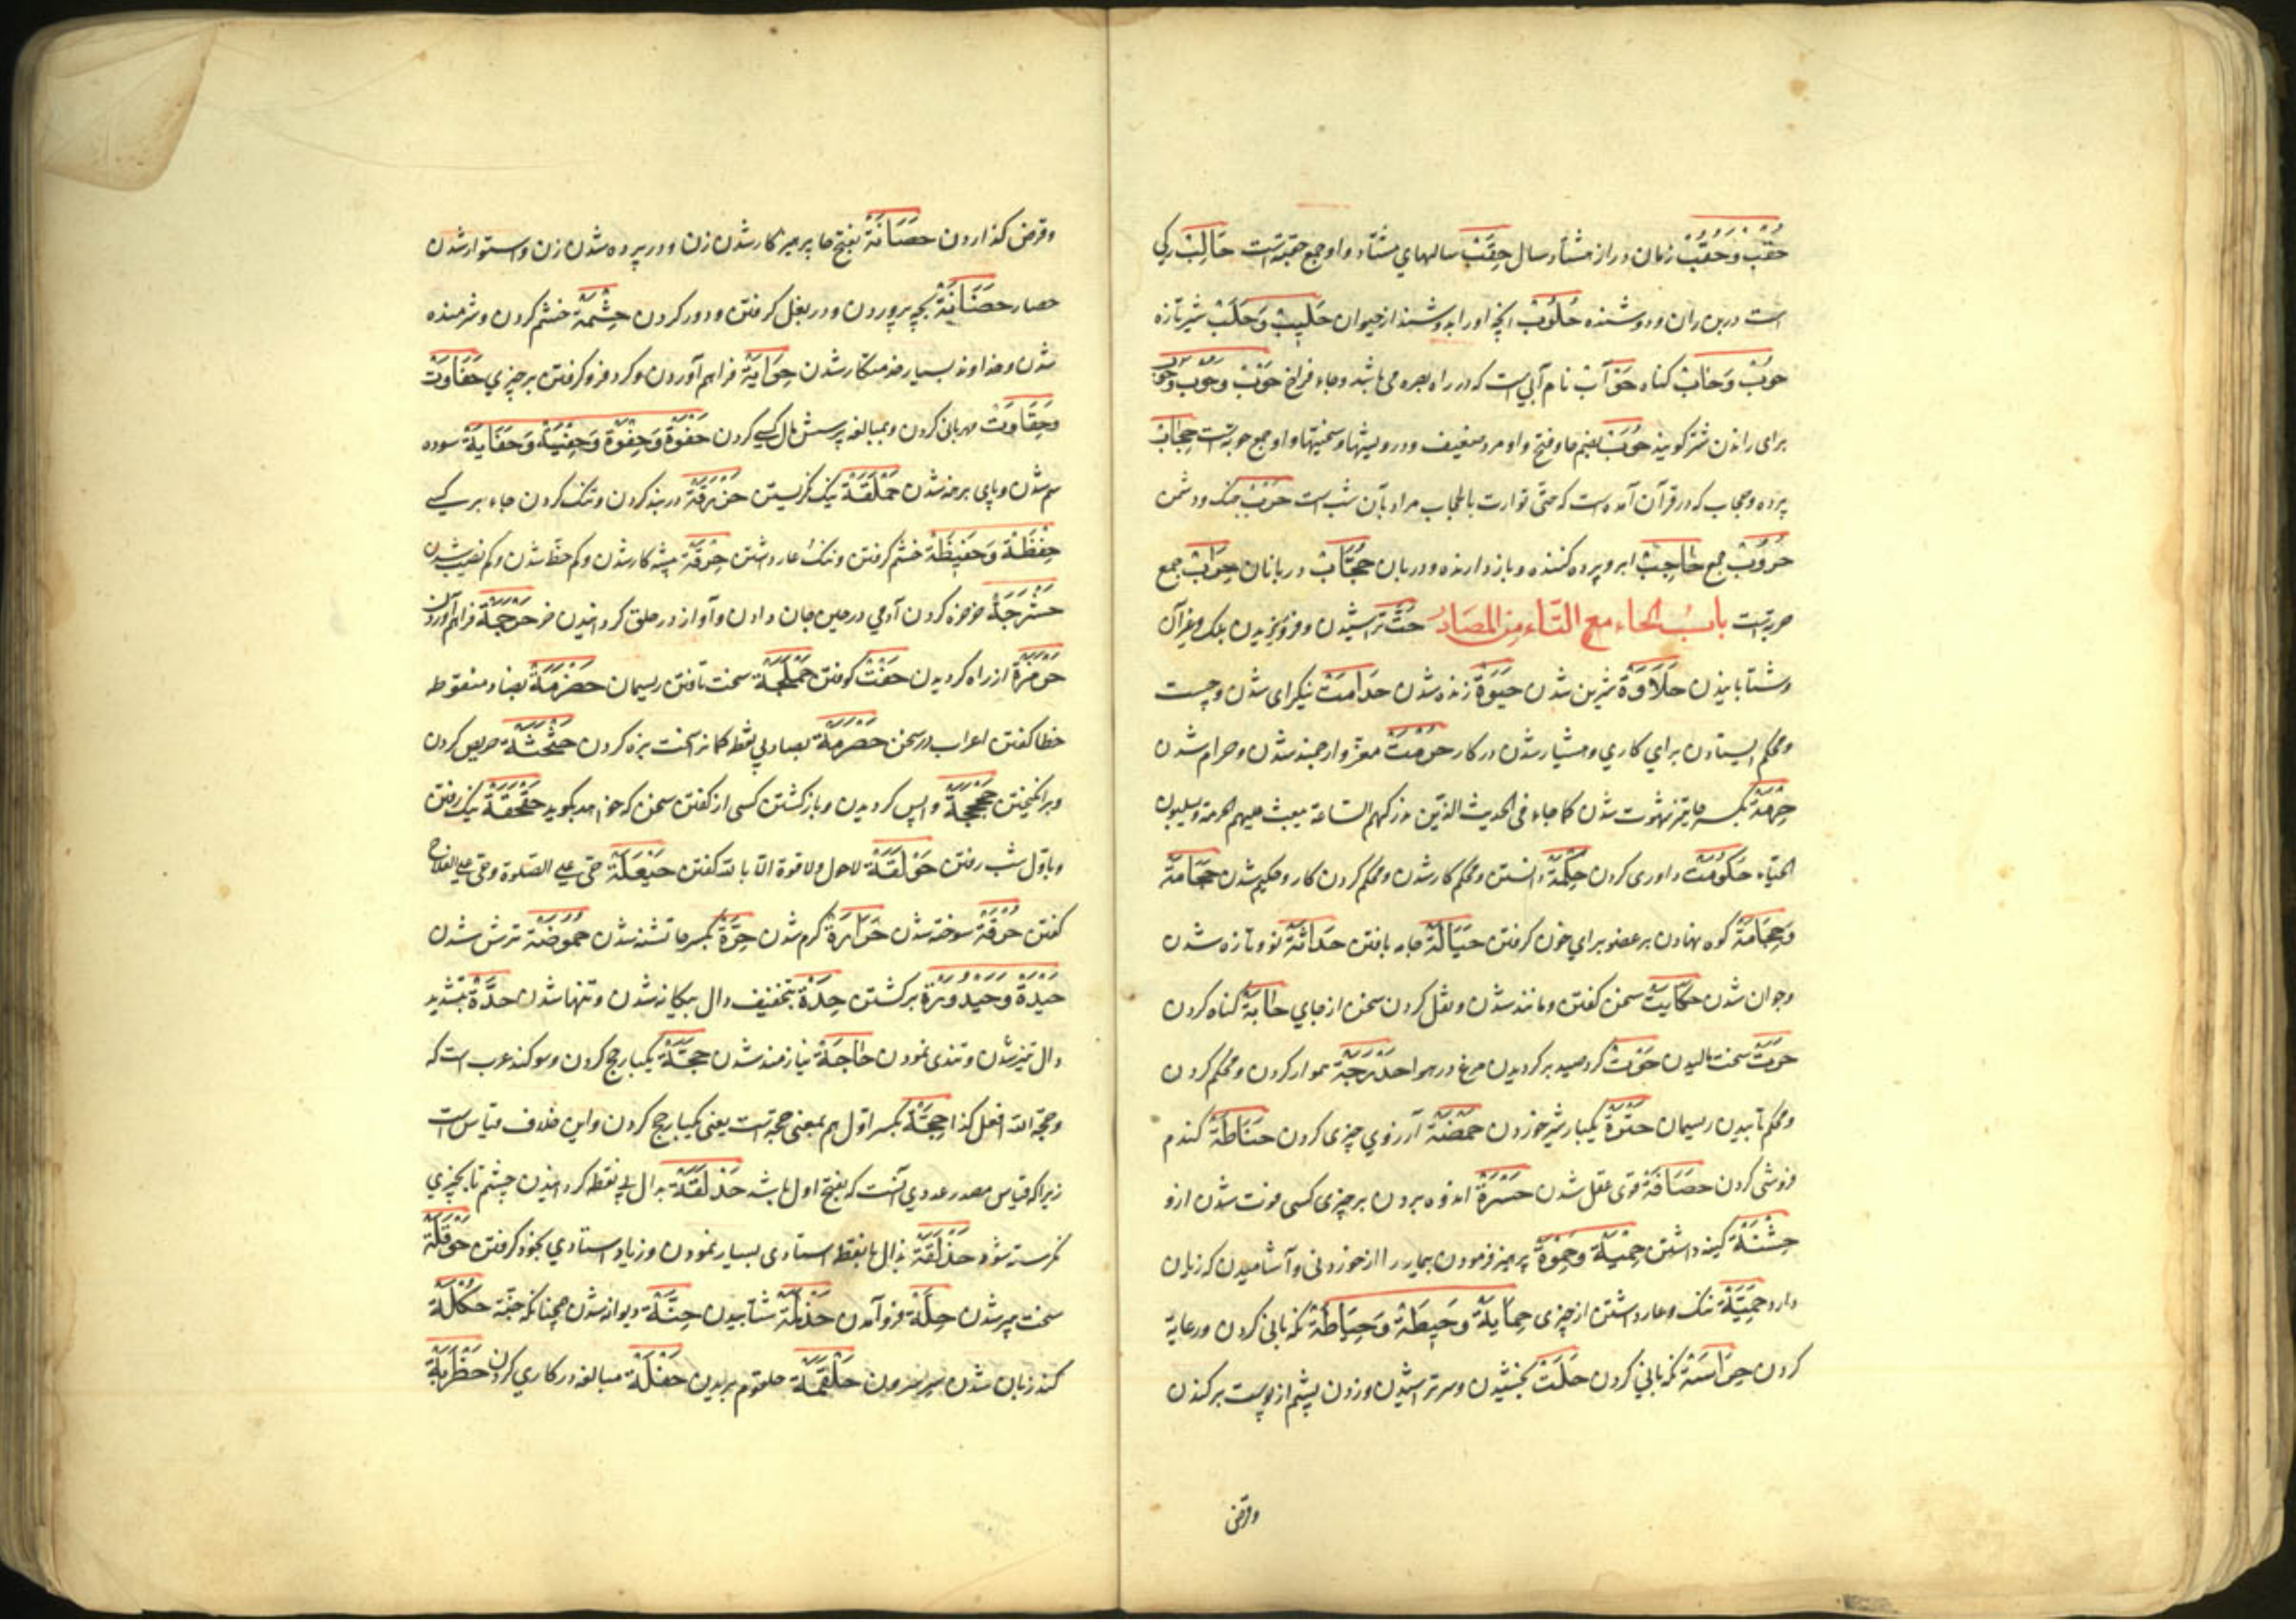 حُقْبْ وَحُقُبْ زمان دراز هشتاد سال حِقَبْ سالهای هشتاد و او جمع حقبة است حَالِبْ رکی
است درین ران و دوشنده حَلُوبْ انچه اورا بدوشند از حیوان حَلِیبْ وَحَلَبْ شیر تازه
حُوبْ وَحَابْ کناه حَوْأَبْ نام آبی است که در راه بصره می باشد و جاء فراخ حَوْبْ وحَوْبِ وحَوْبُ
برای راندن شتر کویند حُوَبْ بضم حا و فتح واو مرد ضعیف و درویشیها و سختیها و او جمع حوبة است حِجَابْ
پرده و حجاب که در قرآن آمده است که حتّی توارت بالحجاب مراد بآن شب است حَرْبْ جنک و دشمن
حُرُوبْ جمع حَاجِبْ ابرو و پرده کننده و بازدارنده و دربان حُجَّابْ دربانان حِرَابْ جمع
حربة است بابُ الحاء مع التّاء من المصَادر حَتّ تراشیدن و فرو ریزیدن بلک و غیر آن
و شتابانیدن حَلَاوَةْ شیرین شدن حَیٰوةْ زنده شدن حَدَامَتْ نیکرای شدن و چست
و محکم ایستادن برای کاری و هشیار شدن در کار حُرْمَتْ معزّ و ارجمند شدن و حرام شدن
حِرْمَةْ بکسر حا تیز شهوت شدن کما جاء فی الحدیث الذین تدرکهم الساعة یبعث علیهم الحرمة ویسلبون
الحیاء حُکُومَتْ داوری کردن حِکْمَةْ دانستن و محکم کار شدن و محکم کردن کار و حکیم شدن حَجَامَةْ
وَحِجَامَةْ کوه نهادن بر عضو برای خون کرفتن حِیَاکَةْ جامه بافتن حَدَاثَةْ نو و تازه شدن
و جوان شدن حِکَایَتْ سخن کفتن و مانند شدن و نقل کردن سخن از جای حَابَةْ کناه کردن
حَرْتْ سخت مالیدن حَوْتْ کرد صید برکردیدن مرغ در هوا حَدْرَجَةْ هموار کردن و محکم کردن
و محکم تابیدن ریسمان حَتْوَةْ یکبار شیر خوردن حَمْضَةْ آرزوی چیزی کردن حِنَاطَةْ کندم
فروشی کردن حَصَافَةْ قوی عقل شدن حَسْرَةْ اندوه بردن بر چیزی کسی فوت شدن ازو
حِشْنَةْ کینه داشتن حِمْیَةْ وَحِمْوَةْ پرهیز فرمودن بیمار را از خوردنی و آشامیدن که زیان
دارد حَمِیَّةْ ننک و عار داشتن از چیزی حِمَایَةْ وَحِیطَةْ وَحِیَاطَةْ نکهبانی کردن و رعایة
کردن حِرَاسَةْ نکهبانی کردن حَلَتْ بخشیدن و سر تراشیدن و زدن پشم از پوست برکندن
وقرض
و قرض کذاردن حَصَانَةْ بفتح حا پرهیزکار شدن زن و در پرده شدن زن و استوار شدن
حصار حَضَانَةْ بچه پروردن و در بغل کرفتن و دور کردن حِشْمَةْ خشم کردن و شرمنده
شدن و خداوند بسیار خدمتکار شدن حِوَایَةْ فراهم آوردن و کرد فرو کرفتن بر چیزی حَفَاوَتْ
وَحِفَاوَتْ مهربانی کردن و بمبالغه پرسش حال کسی کردن حَفْوَةْ وَحِفْوَةْ وَحِفْیَةْ وَحَفَایَةْ سوده
سم شدن و پای برهنه شدن حَمْلَقَةْ نیک نکریستن حَزْرَقَةْ در بند کردن و تنک کردن جاء بر کسی
حِفْظَةْ وَحَفِیظَةْ خشم کرفتن و ننک و عار داشتن حِرْفَةْ پیشه کار شدن و کم حظ شدن و کم نصیب شدن
حَشْرَجَةْ خرخره کردن آدمی در حین جان دادن و آواز در حلق کردانیدن خر حَرْجَمَةْ فراهم آوردن
از راه کردیدن حَفْتْ کوفتن حَمْلَجَةْ سخت تافتن ریسمان حَضْرَمَةْ بضاد منقوطه
خطا کفتن اعراب در سخن حَصْرَمَةْ بصاد بی نقطه کمانرا سخت بزه کردن حَثْحَثَةْ حریص کردن
و برانکیختن حَجْحَجَةْ واپس کردیدن و باز کشتن کسی از کفتن سخن که خواهد بکوید حَقْحَقَةْ نیک رفتن
و باول شب رفتن حَوْلَقَةْ لاحول ولا قوة الا بالله کفتن حَیْعَلَةْ حیّ علی الصّلوة وحیّ علی الفلاح
کفتن حُرْقَةْ سوخته شدن حَرَارَةْ کرم شدن حِرَّةْ بکسر حا تشنه شدن حُمُوضَةْ ترش شدن
حَیْدَةْ وَحَیْدُودَةْ برکشتن حِدَةْ بتخفیف دال بیکانه شدن و تنها شدن حِدَّةْ بتشدید
دال تیز شدن و تندی نمودن حَاجَةْ نیازمند شدن حَجَّةْ یکبار حج کردن و سوکند عرب است که
وحجة الله افعل کذا حِجَّةْ بکسر اول هم بمعنی حجة است یعنی یکبار حج کردن و این خلاف قیاس است
زیراکه قیاس مصدر عددی آنست که بفتح اول باشد حَدْلَقَةْ بدال بی نقطه کردانیدن چشم تا بچیزی
نکرسته شود حَذْلَقَةْ بذال با نقطه استادی بسیار نمودن و زیاد استادی بخود کرفتن حَوْقَلَةْ
سخت پیر شدن حِلَّةْ فرو آمدن حَذْلَمَةْ شتابیدن حِنَّةْ دیوانه شدن همچنانکه جنّة حُکْلَةْ
کند زبان شدن حَلْقَمَةْ حلقوم بریدن حَفْلَةْ مبالغه در کاری کردن